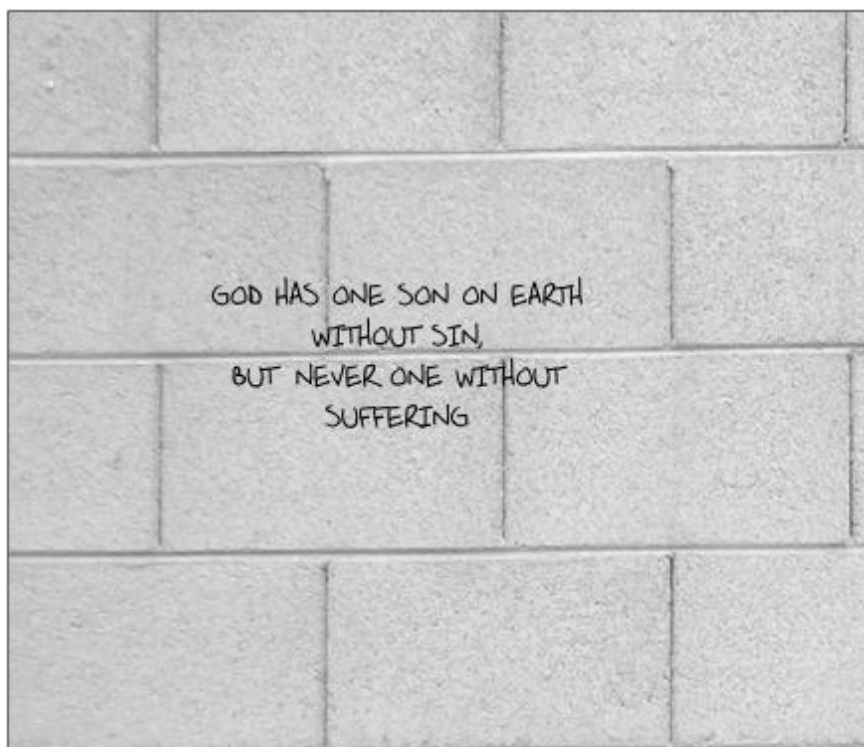 GOD HAS ONE SON ON EARTH
WITHOUT SIN,
BUT NEVER ONE WITHOUT
SUFFERING